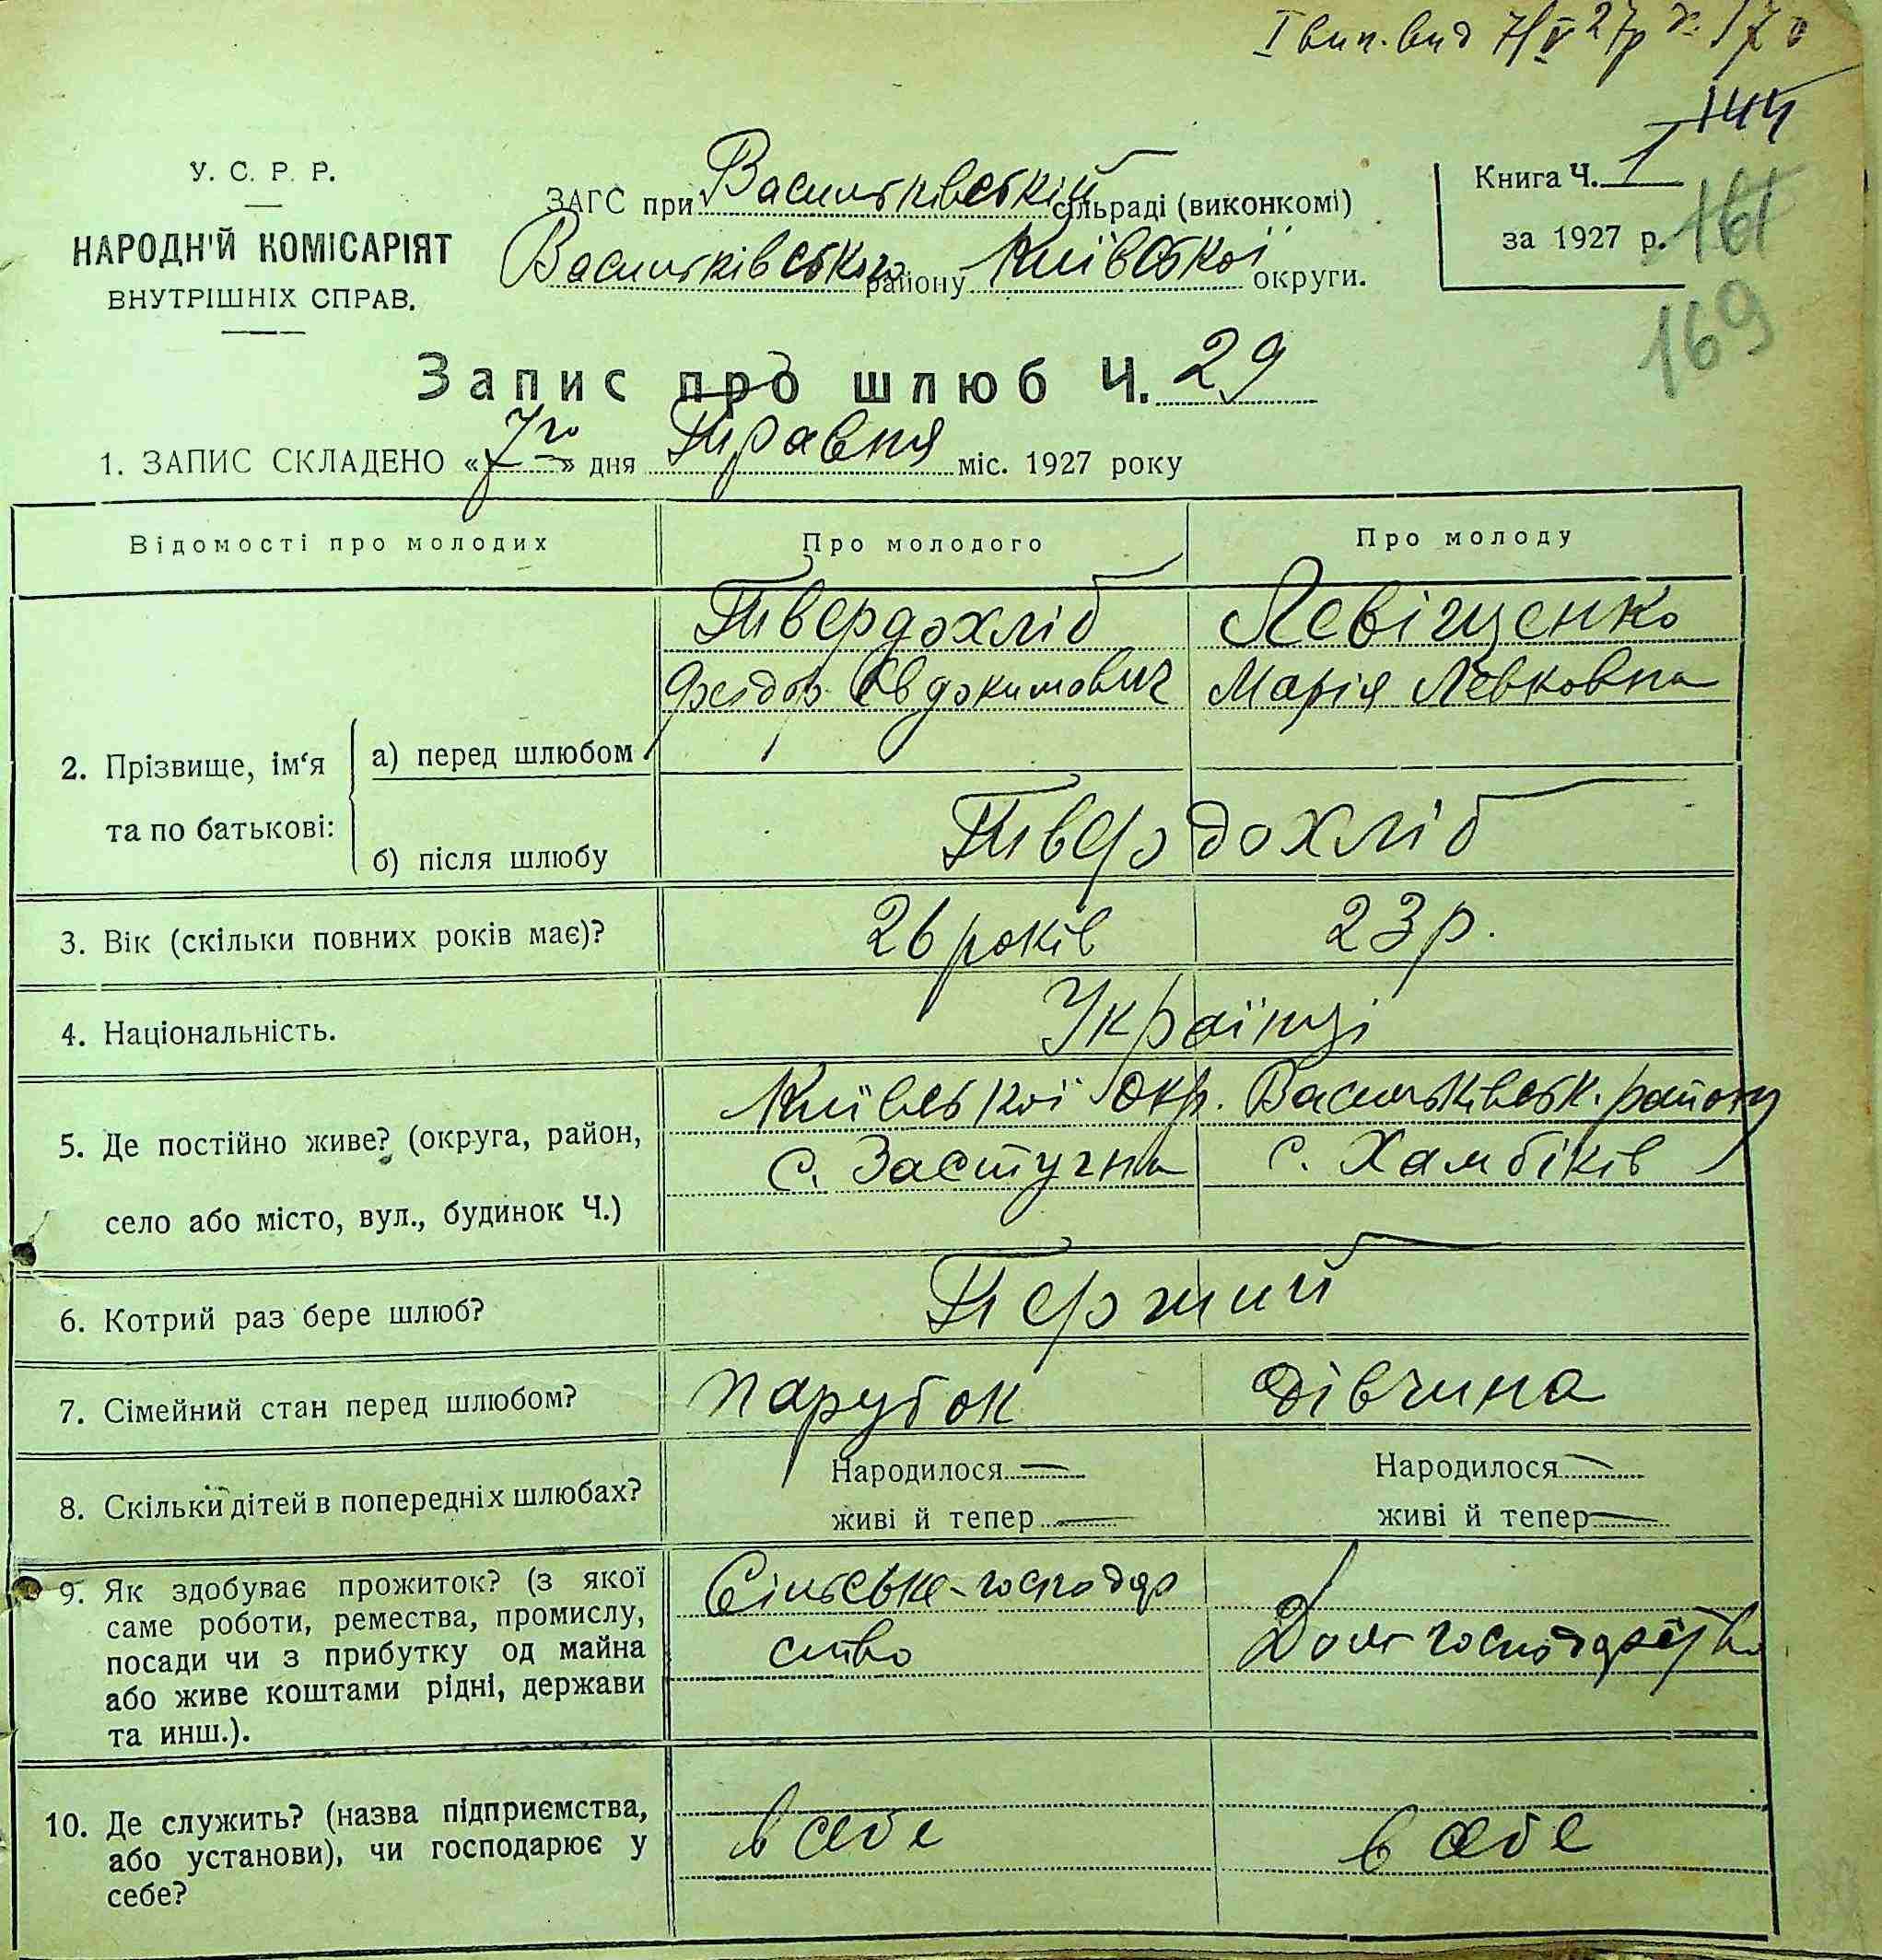 I вип. вид 7/V 27р
144
У. С. Р. Р.
НАРОДН'Й КОМІСАРІЯТ
ВНУТРІШНІХ СПРАВ.
ЗАГС при Васильківській сільраді (виконкомі)
Васильківського району Київської округи.
Книга Ч. 1
за 1927 р.
161
169
Запис про шлюб Ч. 29
1. ЗАПИС СКЛАДЕНО «7го» дня Травня міс. 1927 року
Відомості про молодих Про молодого Про молоду
Твердохліб Левіщенко
Федор Овдокимович Марія Левковна
2. Прізвище, ім'я та по батькові:
а) перед шлюбом
б) після шлюбу
Твердохліб
3. Вік (скільки повних років має)? 26 років 23 р.
4. Національність. Українці
Київської окр. Васильківськ. району
5. Де постійно живе? (округа, район,
с. Застугна с. Хамбіків
село або місто, вул., будинок Ч.)
6. Котрий раз бере шлюб? Перший
7. Сімейний стан перед шлюбом? парубок дівчина
8. Скільки дітей в попередніх шлюбах?
Народилося — Народилося —
живі й тепер — живі й тепер —
9. Як здобуває прожиток? (з якої
саме роботи, ремества, промислу,
посади чи з прибутку од майна
або живе коштами рідні, держави
та инш.).
Сільське-господар
ство
10. Де служить? (назва підприємства,
або установи), чи господарює у
себе?
в себе в себе